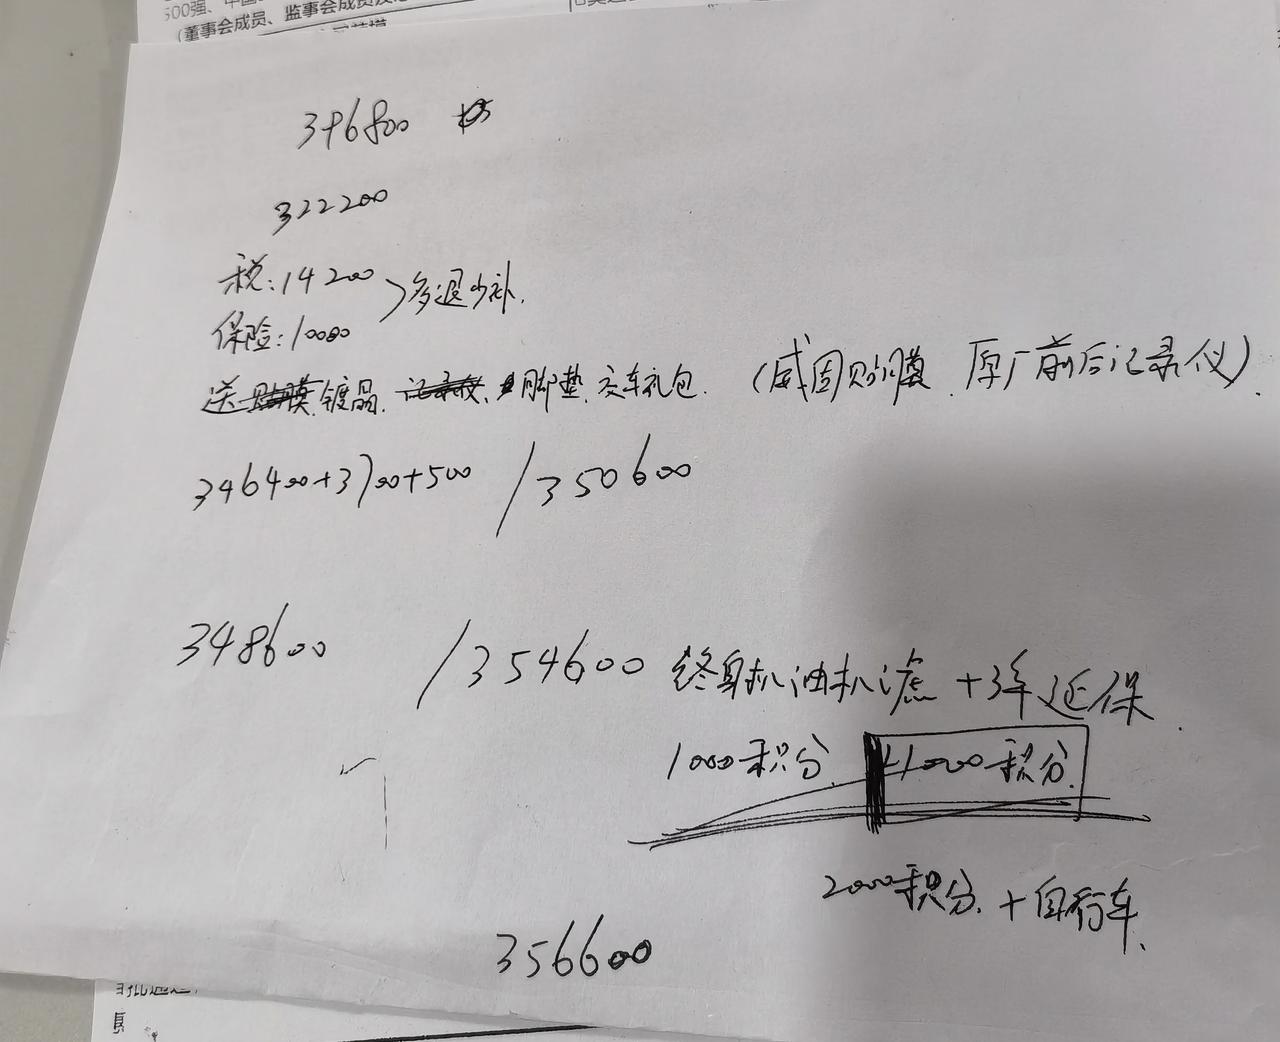 500强、中国
（董事会成员、监事会成员及
396800
322200
税:14200 >多退少补.
保险:10000
送 贴膜 镀晶. 记录仪. 脚垫. 交车礼包. (威固贴膜. 原厂前后记录仪).
346400+3700+500 /350600
348600 /354600 终身机油机滤 +3年延保.
1000积分. +1000积分.
2000积分. +自行车.
356600